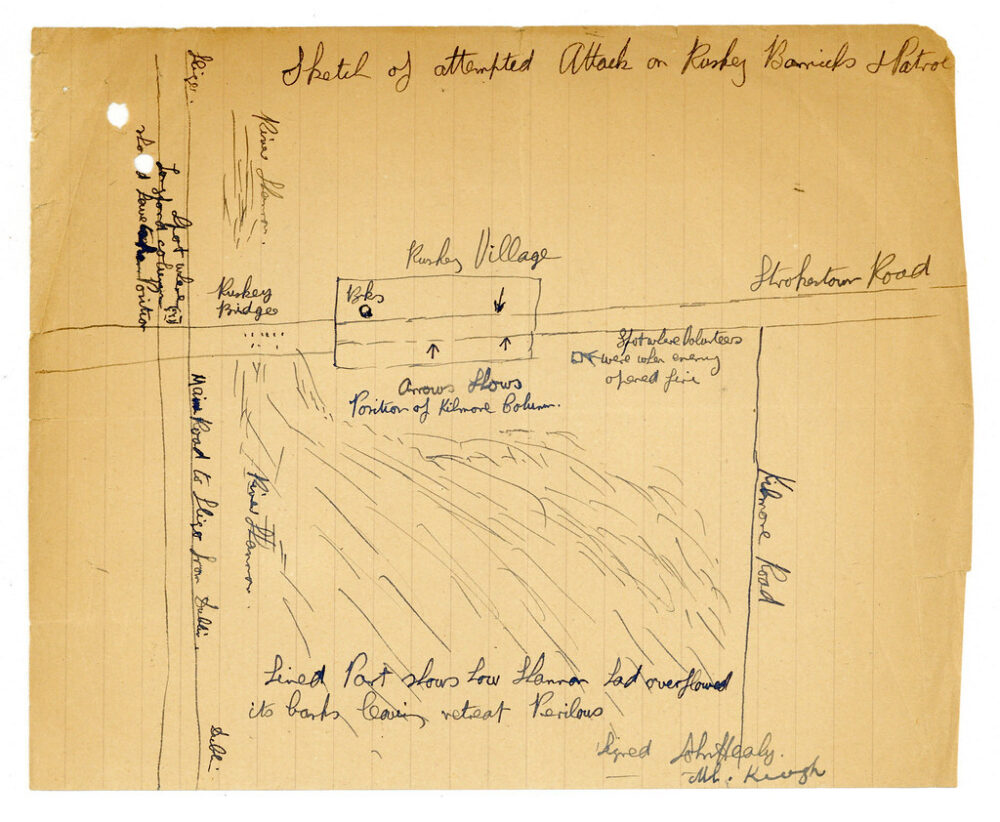 Sketch of attempted Attack on Ruskey Barricks & Patrol
Sligo.
River Shannon.
Spot where
Longford column
should have taken Position
Ruskey Village
Strokestown Road
Ruskey
Bridge
Bks
Spot where Volunteers
were when enemy
opened fire
Arrows Shows
Position of Kilmore Column.
Main Road to Sligo from Dublin.
River Shannon.
Kilmore Road
Lined Part shows how Shannon had overflowed
its banks leaving retreat Perilous
Dublin
Signed John Healy.
Ml. Keough